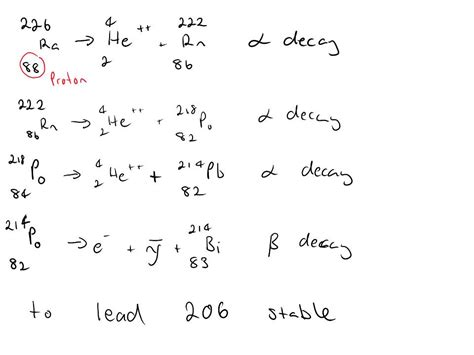 ²²⁶₈₈Ra → ⁴₂He⁺⁺ + ²²²₈₆Rn α decay
Proton
²²²₈₆Rn → ⁴₂He⁺⁺ + ²¹⁸₈₂Po α decay
²¹⁸₈₄Po → ⁴₂He⁺⁺ + ²¹⁴₈₂Pb α decay
²¹⁴₈₂Po → e⁻ + ȳ + ²¹⁴₈₃Bi β decay
to lead 206 stable